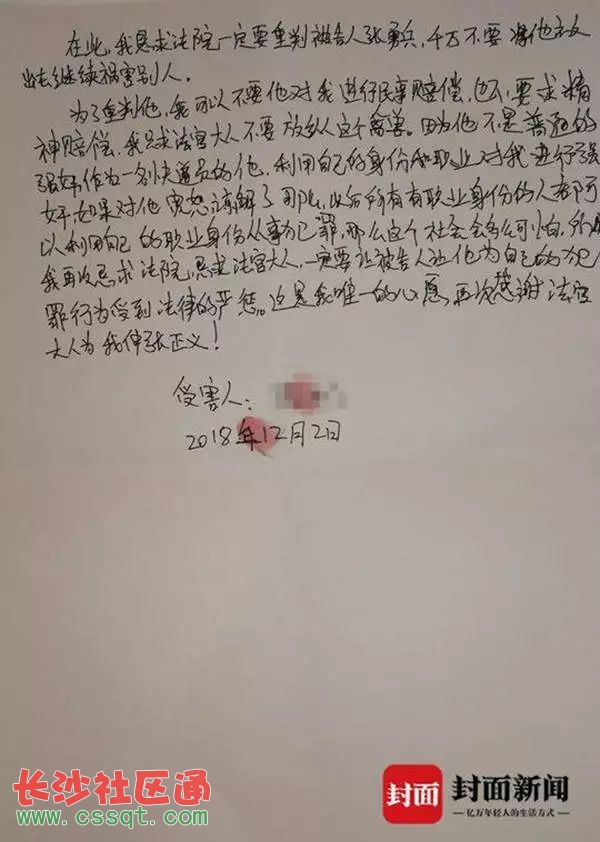 在此,我恳求法院一定要重判被告人张勇兵,千万不要将他放
出去继续祸害别人。
为了重判他,我可以不要他对我进行民事赔偿,也不要求精
神赔偿,我只求法官大人不要放纵这个禽兽。因为他不是普通的
强奸,作为一名快递员的他,利用自己的身份和职业对我进行强
奸,如果对他宽恕谅解了那么,以后所有有职业身份的人都可
以利用自己的职业身份从事犯罪,那么这个社会会多么可怕,
我再次恳求法院,恳求法官大人,一定要让被告人为自己的犯
罪行为受到法律的严惩。这是我唯一的心愿,再次感谢法官
大人为我伸张正义!
受害人:
2018年12月2日
长沙社区通
www.cssqt.com
封面
封面新闻
亿万年轻人的生活方式